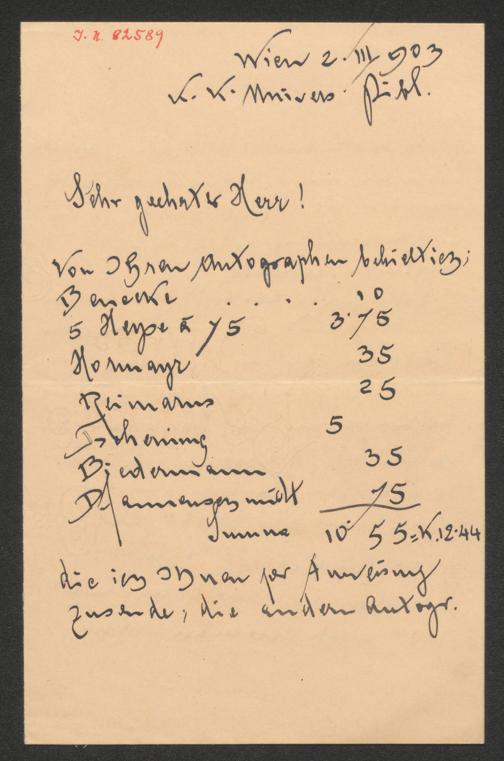 I. N. 82589
Wien 2. III 903
K. K. Univers. Bibl.
Sehr geehrter Herr!
Von Ihren Autographen behielt ich;
Benecke . . . . 10
5 Heyse à 75 3.75
Hormayr 35
Reimarus 25
Tscherning 5
Biedermann 35
Pfannenschmidt 75
Summa 10 55 = K. 12.44
die ich Ihnen per Anweisung
zusende, die andern Autogr.